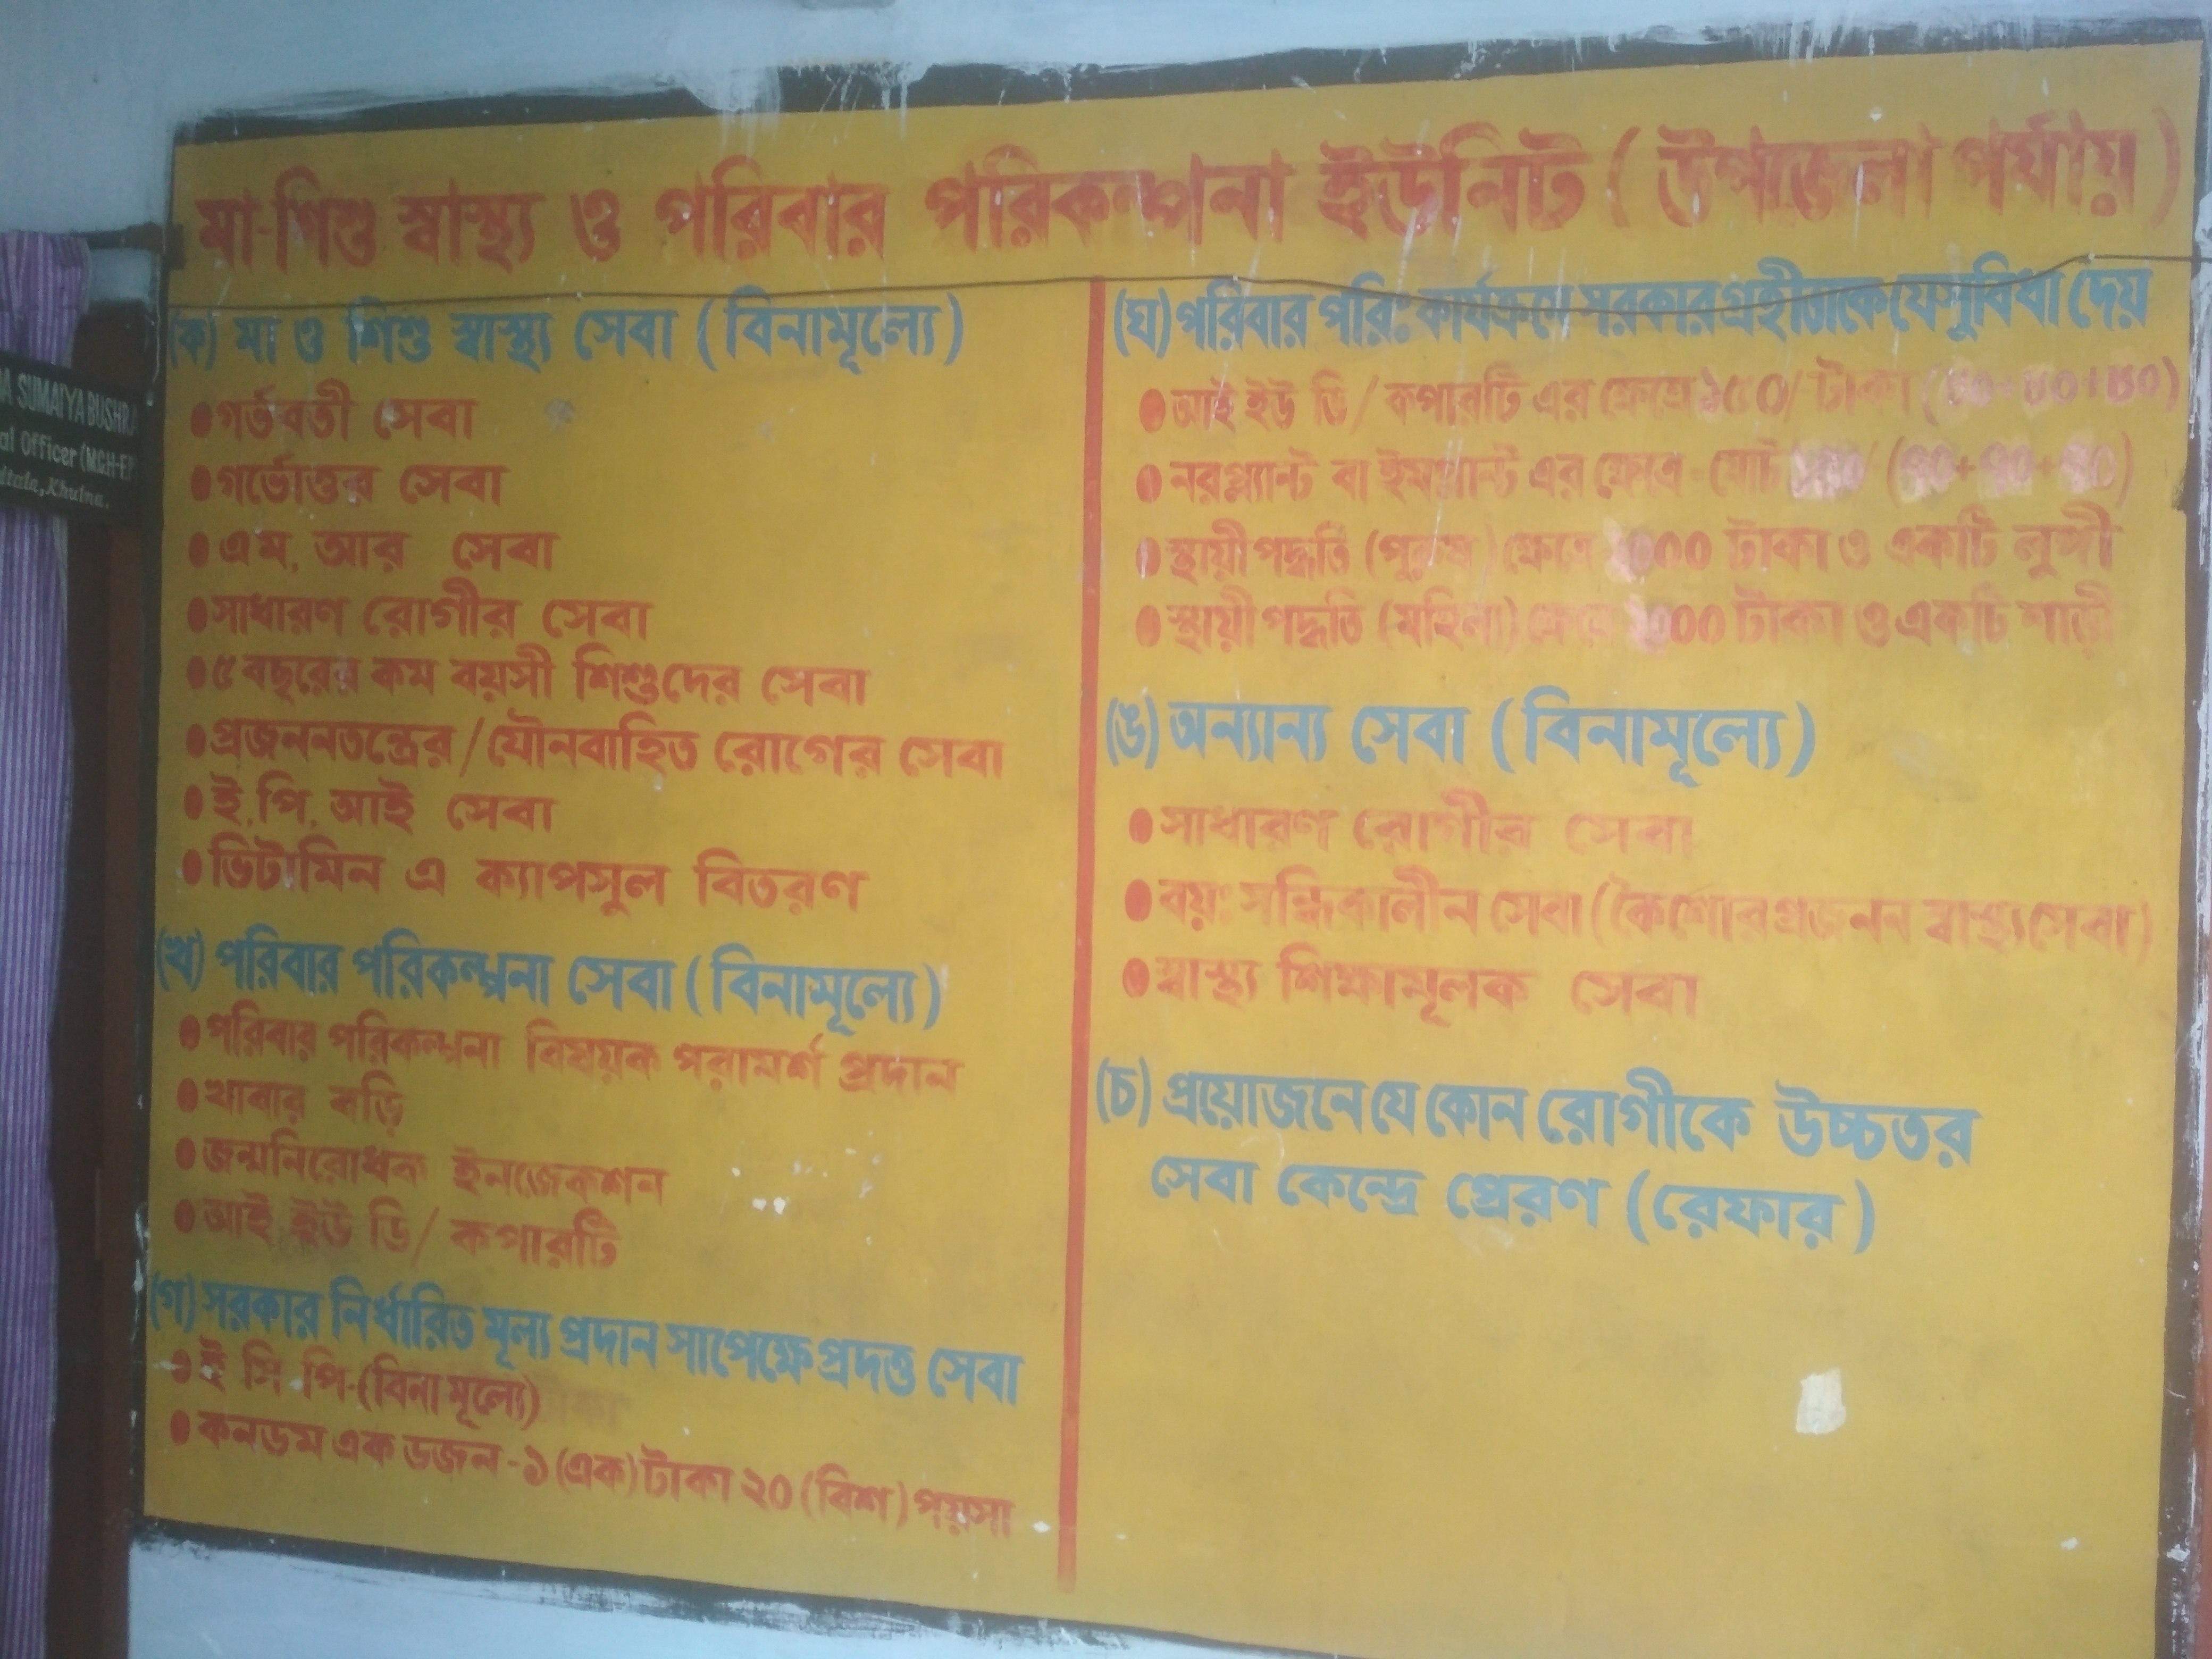 মা-শিশু স্বাস্থ্য ও পরিবার পরিকল্পনা ইউনিট (উপজেলা পর্যায়)
(ক) মা ও শিশু স্বাস্থ্য সেবা (বিনামূল্যে)
গর্ভবতী সেবা
গর্ভোত্তর সেবা
এম. আর সেবা
সাধারণ রোগীর সেবা
৫ বছরের কম বয়সী শিশুদের সেবা
প্রজননতন্ত্রের/যৌনবাহিত রোগের সেবা
ই.পি. আই সেবা
ভিটামিন এ ক্যাপসুল বিতরণ
(খ) পরিবার পরিকল্পনা সেবা (বিনামূল্যে)
পরিবার পরিকল্পনা বিষয়ক পরামর্শ প্রদান
খাবার বড়ি
জন্মনিরোধক ইনজেকশন
আই ইউ ডি/ কপারটি
(গ) সরকার নির্ধারিত মূল্য প্রদান সাপেক্ষে প্রদত্ত সেবা
ই সি পি-(বিনা মূল্যে)
কনডম এক ডজন -১ (এক) টাকা ২০ (বিশ) পয়সা
(ঘ) পরিবার পরিঃ কার্যক্রমে সরকার গ্রহীতাকে যে সুবিধা দেয়
আই ইউ ডি/ কপারটি এর ক্ষেত্রে ১৫০/ টাকা
নরপ্ল্যান্ট বা ইমপ্লান্ট এর ক্ষেত্রে - মোট
স্থায়ী পদ্ধতি (পুরুষ) ক্ষেত্রে টাকা ও একটি লুঙ্গী
স্থায়ী পদ্ধতি (মহিলা) ক্ষেত্রে টাকা ও একটি শাড়ী
(ঙ) অন্যান্য সেবা (বিনামূল্যে)
সাধারণ রোগীর সেবা
বয়ঃ সন্ধিকালীন সেবা (কৈশোর প্রজনন স্বাস্থ্য সেবা)
স্বাস্থ্য শিক্ষামূলক সেবা
(চ) প্রয়োজনে যে কোন রোগীকে উচ্চতর
সেবা কেন্দ্রে প্রেরণ (রেফার)
SUMAIYA BUSHRA
Officer (MCH-FP)
Khulna.